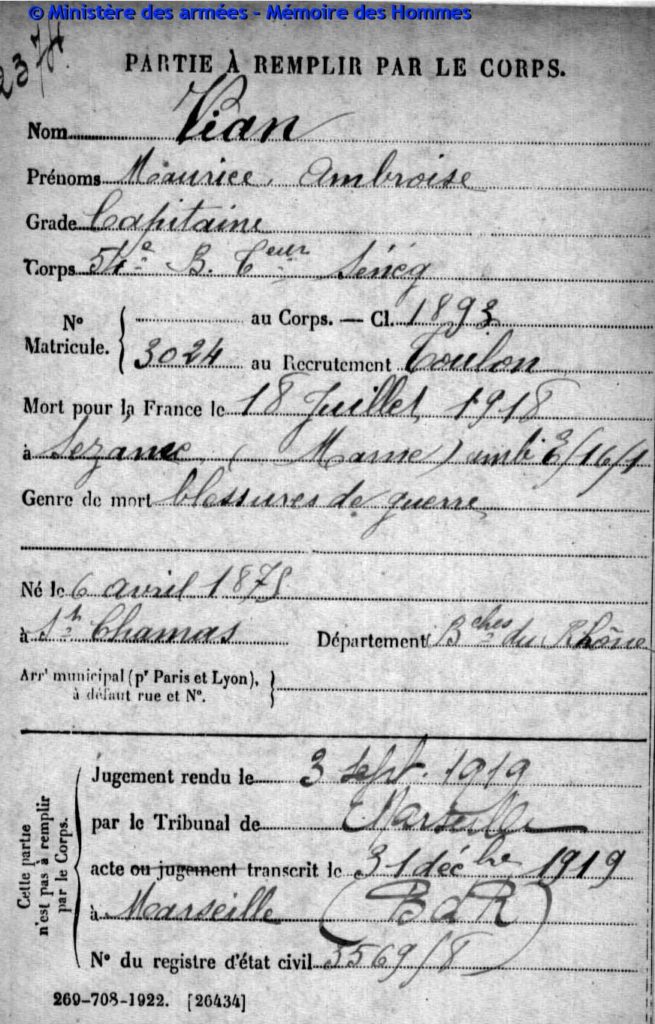 © Ministère des armées - Mémoire des Hommes
PARTIE À REMPLIR PAR LE CORPS.
Nom Vian
Prénoms Maurice, Ambroise
Grade Capitaine
Corps 54e B. Ceur Sénég
No Matricule. { au Corps. — Cl. 1893
3024 au Recrutement Toulon
Mort pour la France le 18 Juillet 1918
à Sezanne (Marne) 16/1
Genre de mort blessures de guerre
Né le 6 avril 1873
à St Chamas Département Bches du Rhône
Arrt municipal (pr Paris et Lyon),
à défaut rue et No.
Cette partie n'est pas à remplir par le Corps.
Jugement rendu le 3 Sept. 1919
par le Tribunal de Marseille
acte ou jugement transcrit le 31 déchre 1919
à Marseille (B d R)
No du registre d'état civil 3569/8
269-708-1922. [26434]